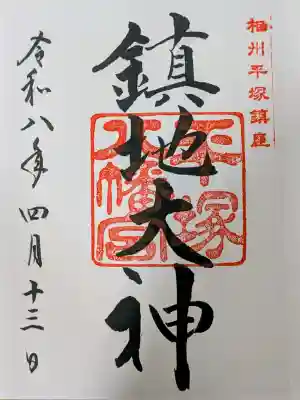 相州平塚鎮座
鎮地大神
平塚
八幡宮
令和八年四月十三日